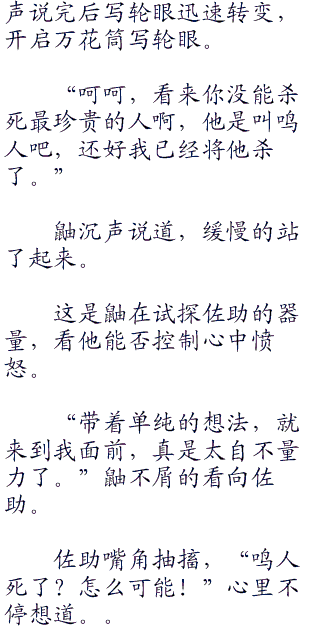 声说完后写轮眼迅速转变，
开启万花筒写轮眼。
“呵呵，看来你没能杀
死最珍贵的人啊，他是叫鸣
人吧，还好我已经将他杀
了。”
鼬沉声说道，缓慢的站
了起来。
这是鼬在试探佐助的器
量，看他能否控制心中愤
怒。
“带着单纯的想法，就
来到我面前，真是太自不量
力了。”鼬不屑的看向佐
助。
佐助嘴角抽搐，“鸣人
死了？怎么可能！”心里不
停想道。。